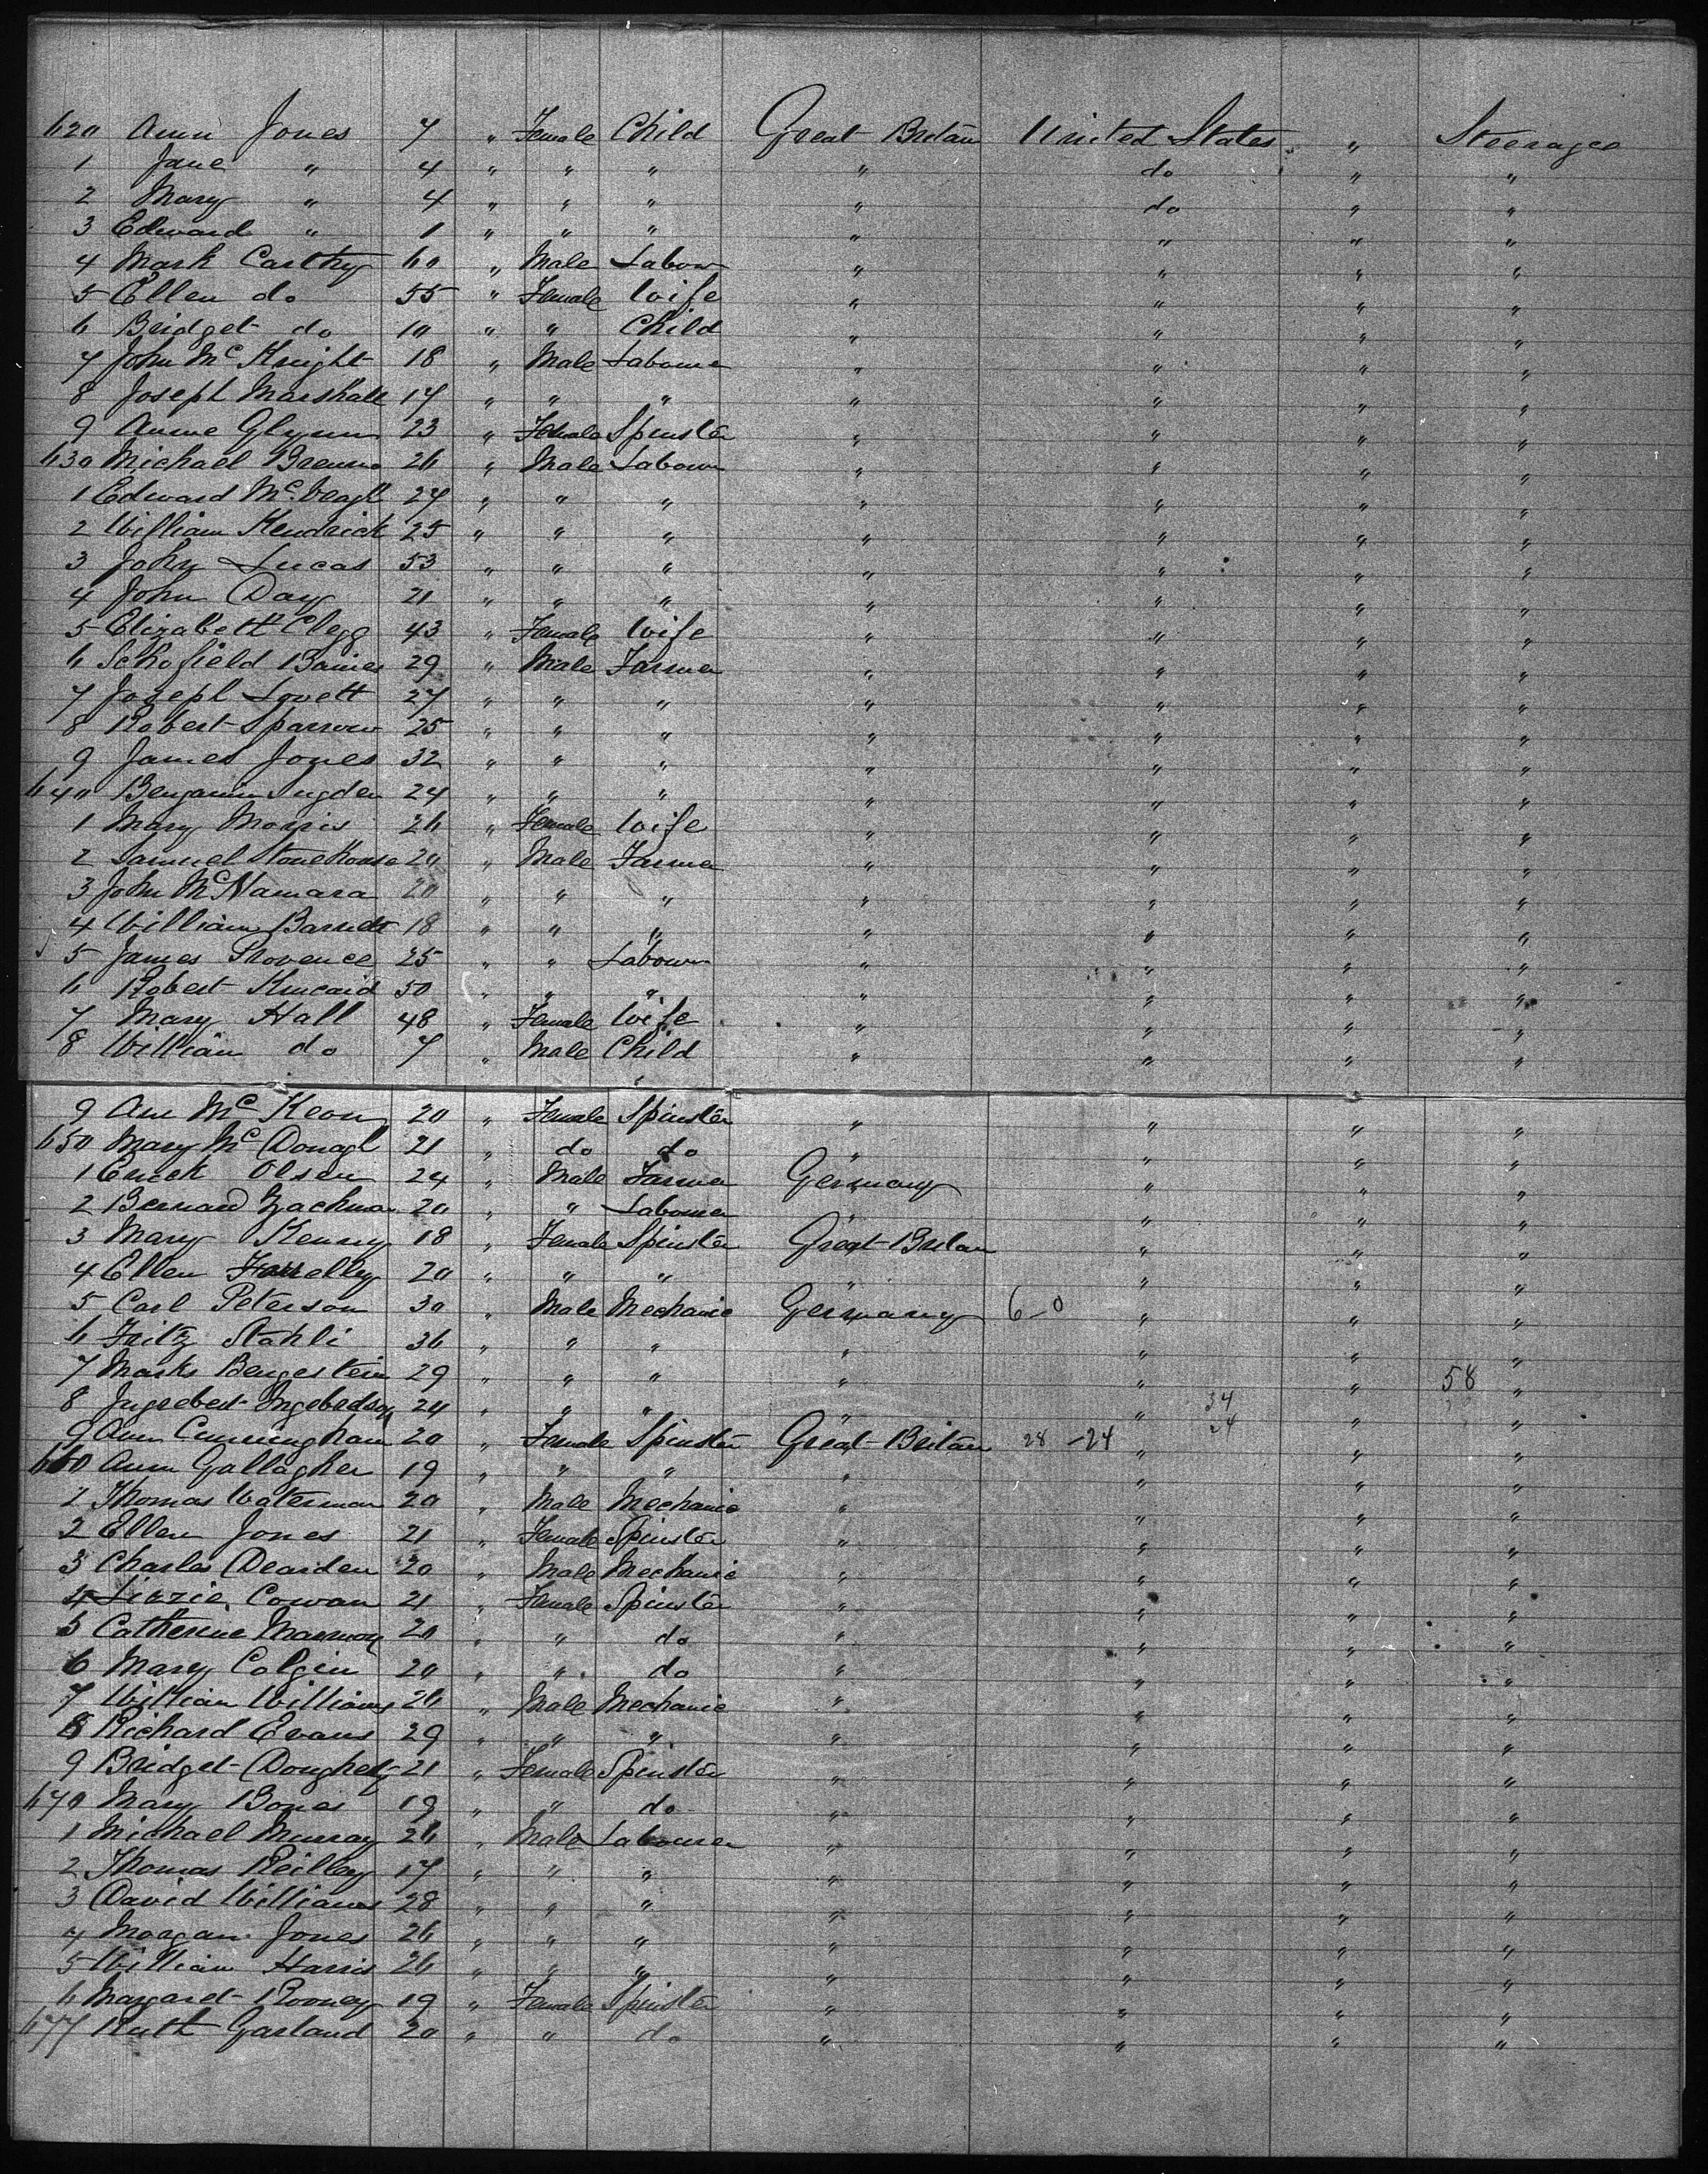 620 Ann Jones 7 " Female Child Great Britain United States " Steerage
1 Jane " 4 " " " " do " "
2 Mary " 4 " " " " do " "
3 Edward " 1 " " " " " " "
4 Mark Carthy 60 " Male Labour " " " "
5 Ellen do 55 " Female Wife " " " "
6 Bridget do 10 " " Child " " " "
7 John McKnight 18 " Male Labourer " " " "
8 Joseph Marshall 17 " " " " " " "
9 Annie Glynn 23 " Female Spinster " " " "
630 Michael 26 " Male Labour " " " "
1 Edward McVeagh 27 " " " " " " "
2 William Kendrick 25 " " " " " " "
3 John Lucas 53 " " " " " " "
4 John Day 21 " " " " " " "
5 Elizabeth Clegg 43 " Female Wife " " " "
6 Schofield Baines 29 " Male Farmer " " " "
7 Joseph Lovett 27 " " " " " " "
8 Robert Sparrow 25 " " " " " " "
9 James Jones 32 " " " " " " "
640 Benjamin Sugden 24 " " " " " " "
1 Mary Morris 26 " Female Wife " " " "
2 Samuel Stonehouse 20 " Male Farmer " " " "
3 John McNamara 20 " " " " " " "
4 William 18 " " " " " " "
5 James Provence 25 " " Labour " " " "
6 Robert Kincaid 50 " " " " " " "
7 Mary Hall 48 " Female Wife " " " "
8 William do 7 " Male Child " " " "
9 Ann McKeon 20 " Female Spinster " " " "
650 Mary McDonagh 21 " do do " " " "
1 Erick Olsen 24 " Male Farmer Germany " " "
2 Bernard Zachman 20 " " Labourer " " " "
3 Mary Kenny 18 " Female Spinster Great Britain " " "
4 Ellen 20 " " " " " " "
5 Carl Peterson 30 " Male Mechanic Germany 6-0 " " "
6 Fritz Stahli 36 " " " " " " "
7 Marks Bengestein 29 " " " " " " 58 "
8 Ingebret Ingebretson 24 " " " " " 34 " "
9 Ann Cunningham 20 " Female Spinster Great Britain 28 -24 " 24 " "
660 Ann Gallagher 19 " " " " " " "
1 Thomas Waterman 20 " Male Mechanic " " " "
2 Ellen Jones 21 " Female Spinster " " " "
3 Charles Dearden 20 " Male Mechanic " " " "
4 Lizzie Cowan 21 " Female Spinster " " " "
5 Catherine 20 " " do " " " "
6 Mary Colgin 20 " " do " " " "
7 William Williams 26 " Male Mechanic " " " "
8 Richard Evans 29 " " " " " " "
9 Bridget Dougherty 21 " Female Spinster " " " "
670 Mary Bones 19 " " do " " " "
1 Michael Murray 26 " Male Labourer " " " "
2 Thomas Reilley 17 " " " " " " "
3 David Williams 28 " " " " " " "
4 Morgan Jones 26 " " " " " " "
5 William Harris 26 " " " " " " "
6 Margaret Rooney 19 " Female Spinster " " " "
677 Ruth Garland 20 " " do " " " "